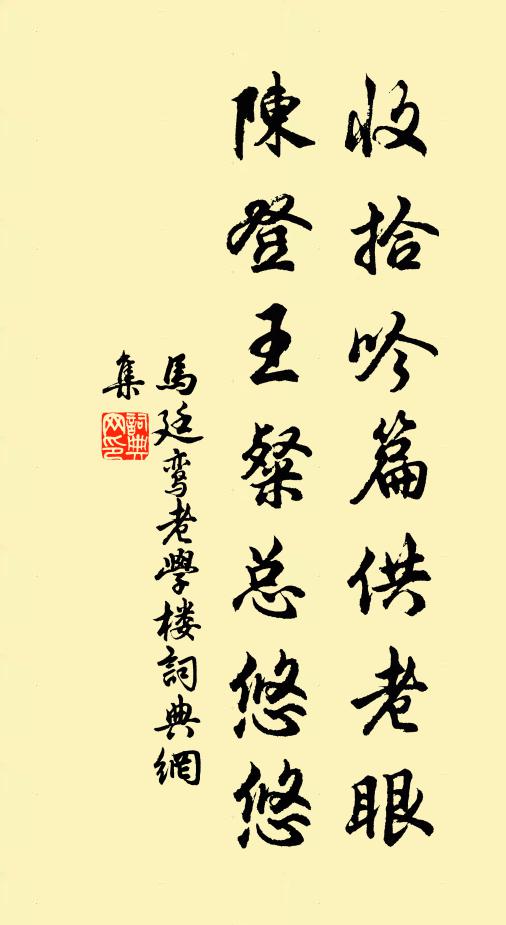 收拾吟篇供老眼
陳登王粲总悠悠
馬廷鸾老學楼詞典網
集
詞典
网印